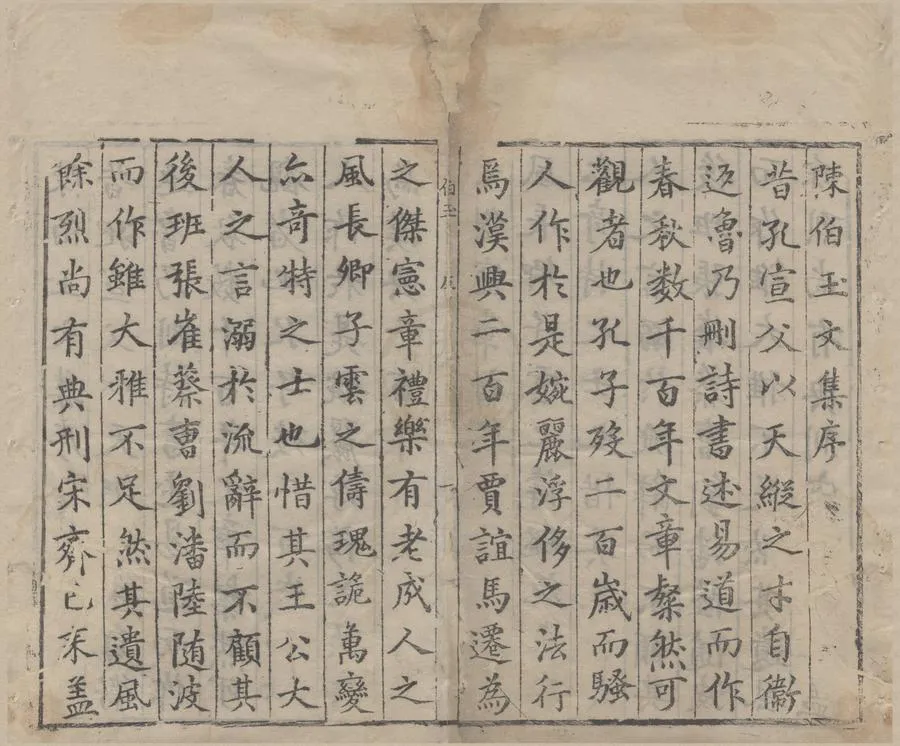 陳伯玉文集序
昔孔宣父以天縱之才自衞
返魯乃刪詩書述易道而作
春秋数千百年文章粲然可
觀者也孔子殁二百歳而騷
人作於是婉麗浮侈之法行
焉漢興二百年賈誼馬遷為
伯玉 序 一
之傑憲章禮樂有老成人之
風長卿子雲之儔瑰詭萬變
亦奇特之士也惜其王公大
人之言溺於流辭而不顧其
後班張崔蔡曺劉潘陸随波
而作雖大雅不足然其遺風
餘烈尚有典刑宋齊已来盖